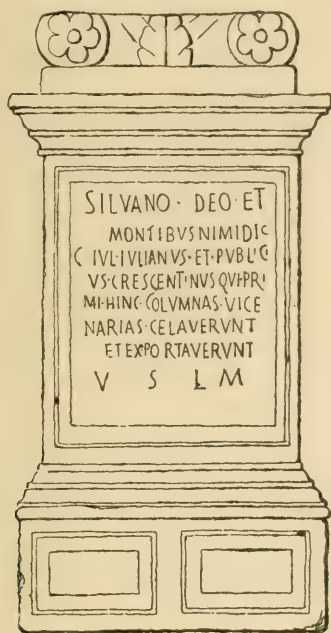 SILVANO · DEO · ET
MONTIBVS NIMIDIC
C IVL·IVLIANVS·ET·PVBLIC
VS·CRESCENTINVS QVI·PRI
MI·HINC·COLVMNAS·VICE
NARIAS·CELAVERVNT
ET EXPORTAVERVNT
V S L M